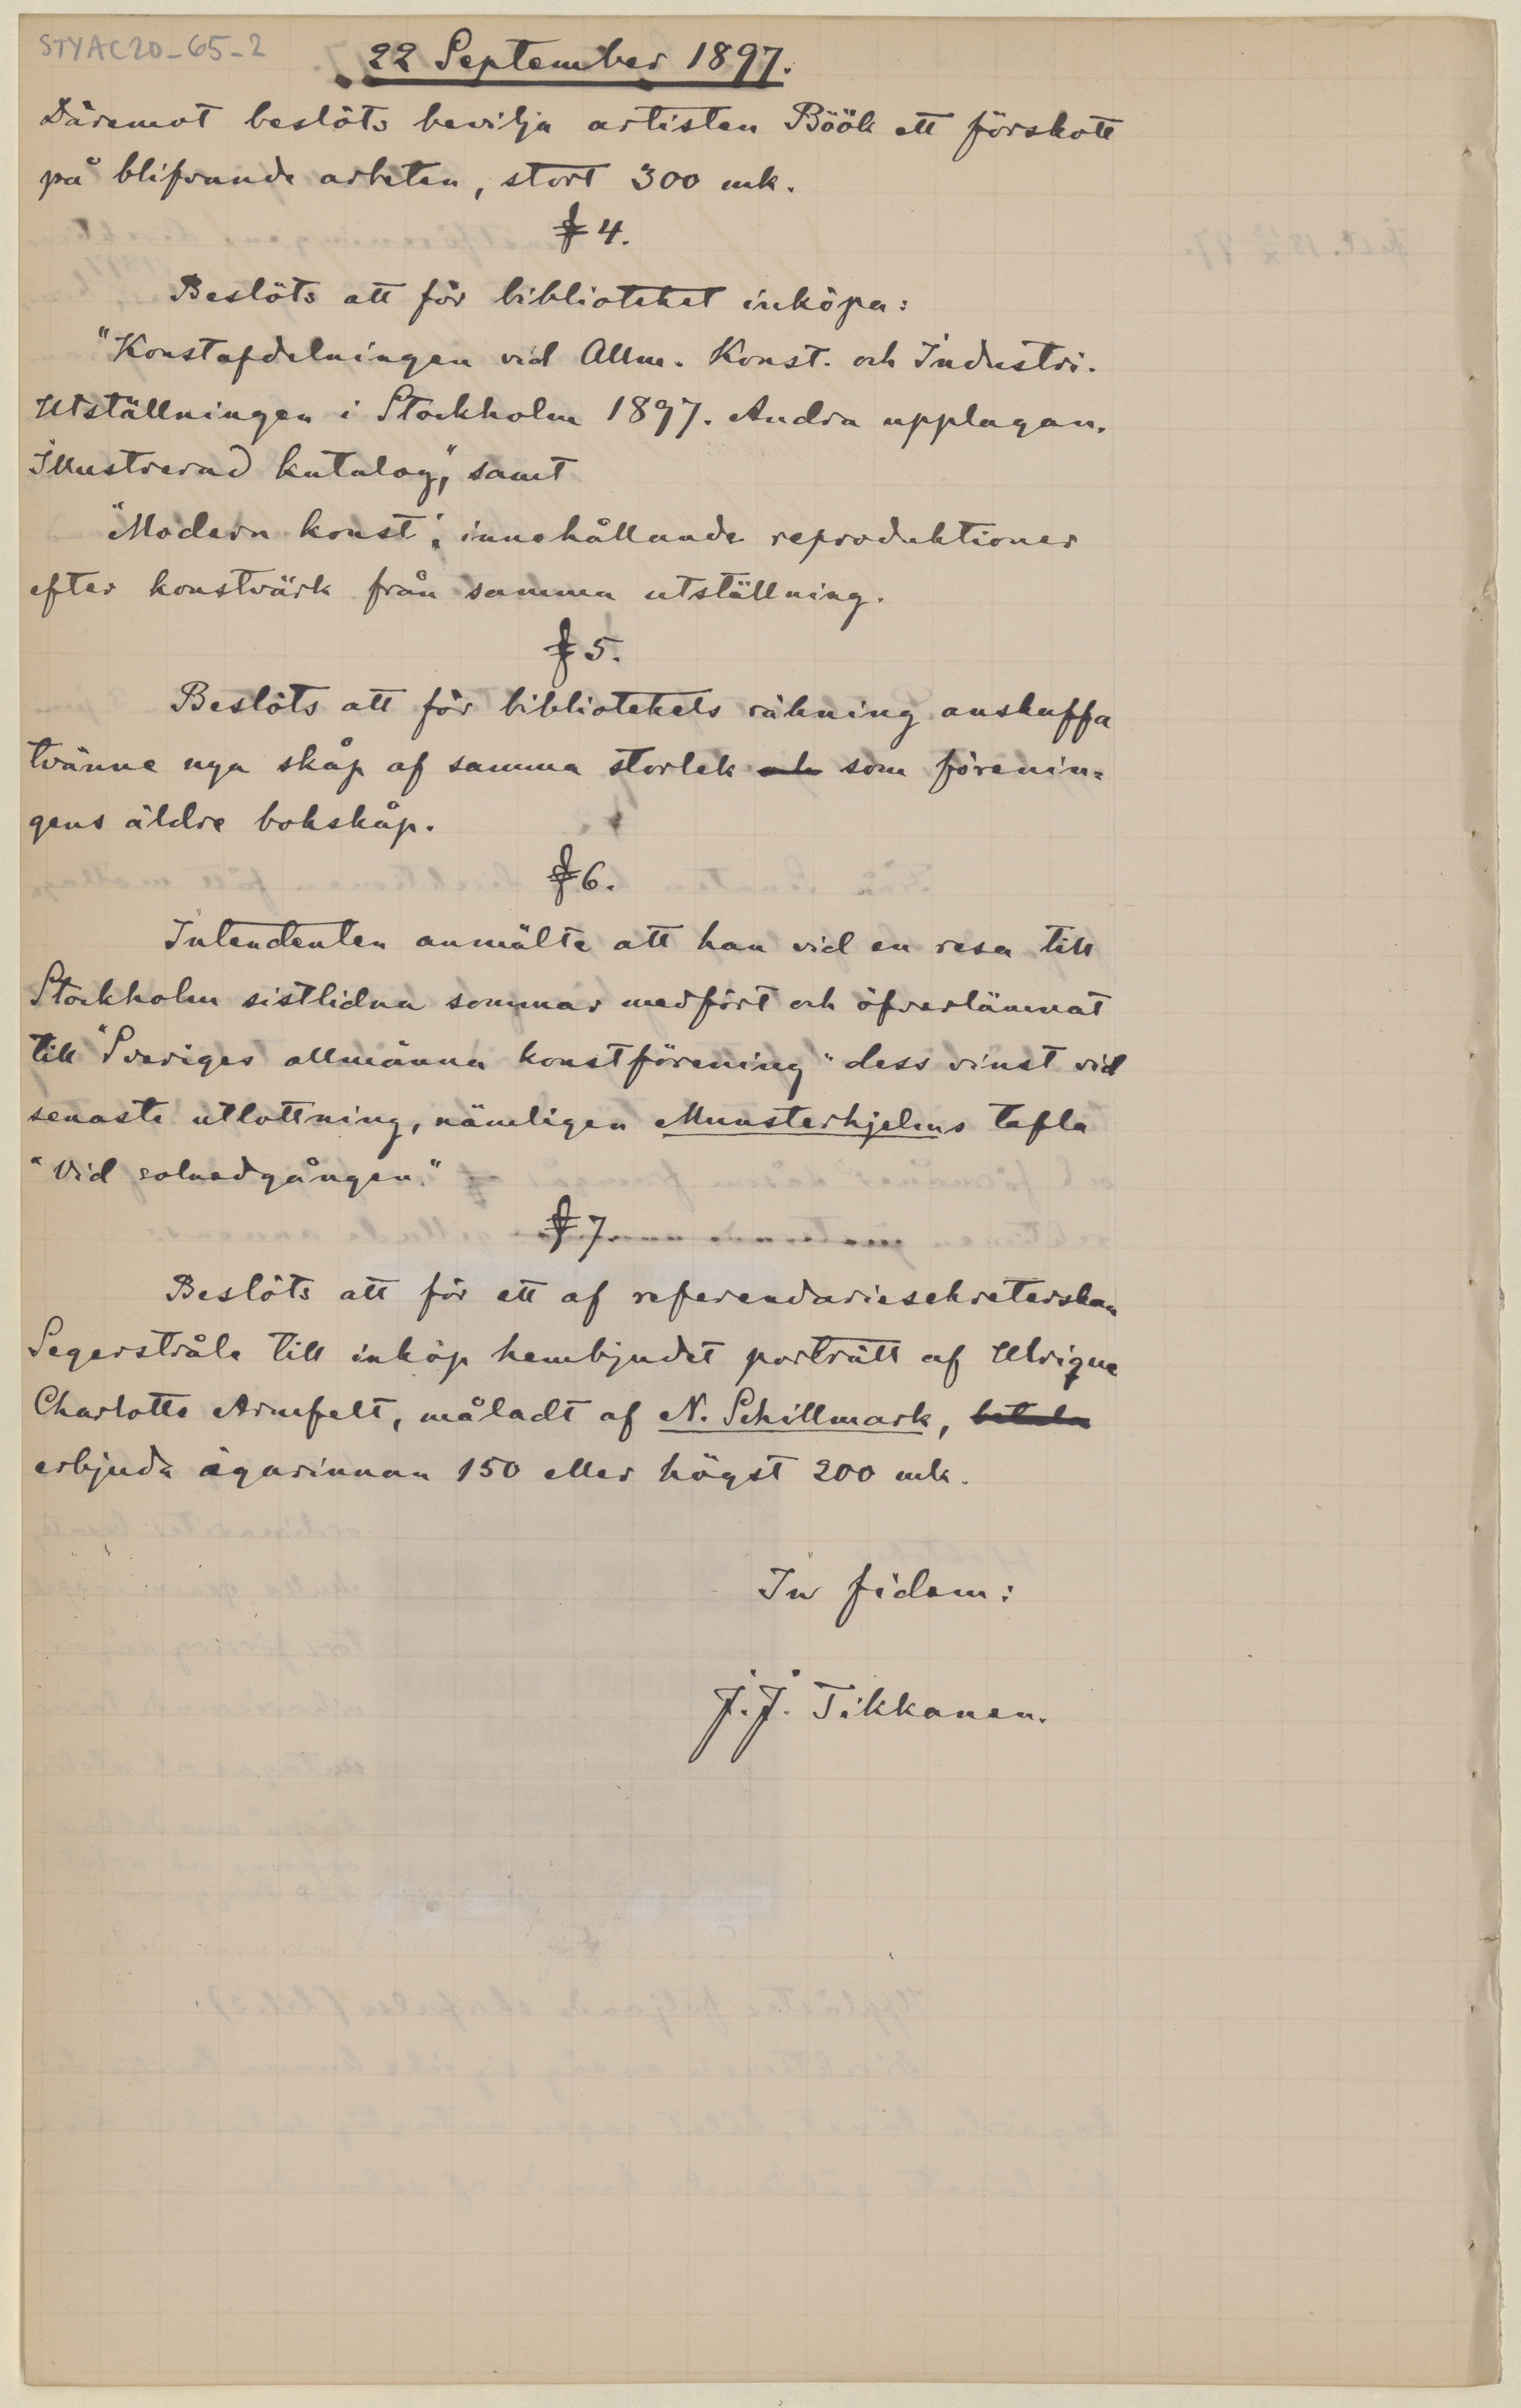 STYAC20-65-2
22 September 1897.
Däremot beslöts bevilja artisten Böök ett förskott
på blifvande arbeten, stort 300 mk.
§ 4.
Beslöts att för biblioteket inköpa:
"Konstafdelningen vid Allm. Konst- och Industri-
Utställningen i Stockholm 1897. Andra upplagan.
Illustrerad katalog", samt
"Modern konst", innehållande reproduktioner
efter konstvärk från samma utställning.
§ 5.
Beslöts att för bibliotekets räkning anskaffa
tvänne nya skåp af samma storlek och som förenin-
gens äldre bokskåp.
§ 6.
Intendenten anmälte att han vid en resa till
Stockholm sistlidna sommar medfört och öfverlämnat
till "Sveriges allmänna konstförening" dess vinst vid
senaste utlottning, nämligen Munsterhjelms tafla
"Vid solnedgången."
§ 7.
Beslöts att för ett af referendariesekreterskan
Segerstråle till inköp hembjudet porträtt af Ulrique
Charlotte Armfelt, måladt af N. Schillmark, betala
erbjuda ägarinnan 150 eller högst 200 mk.
In fidem:
J. J. Tikkanen.